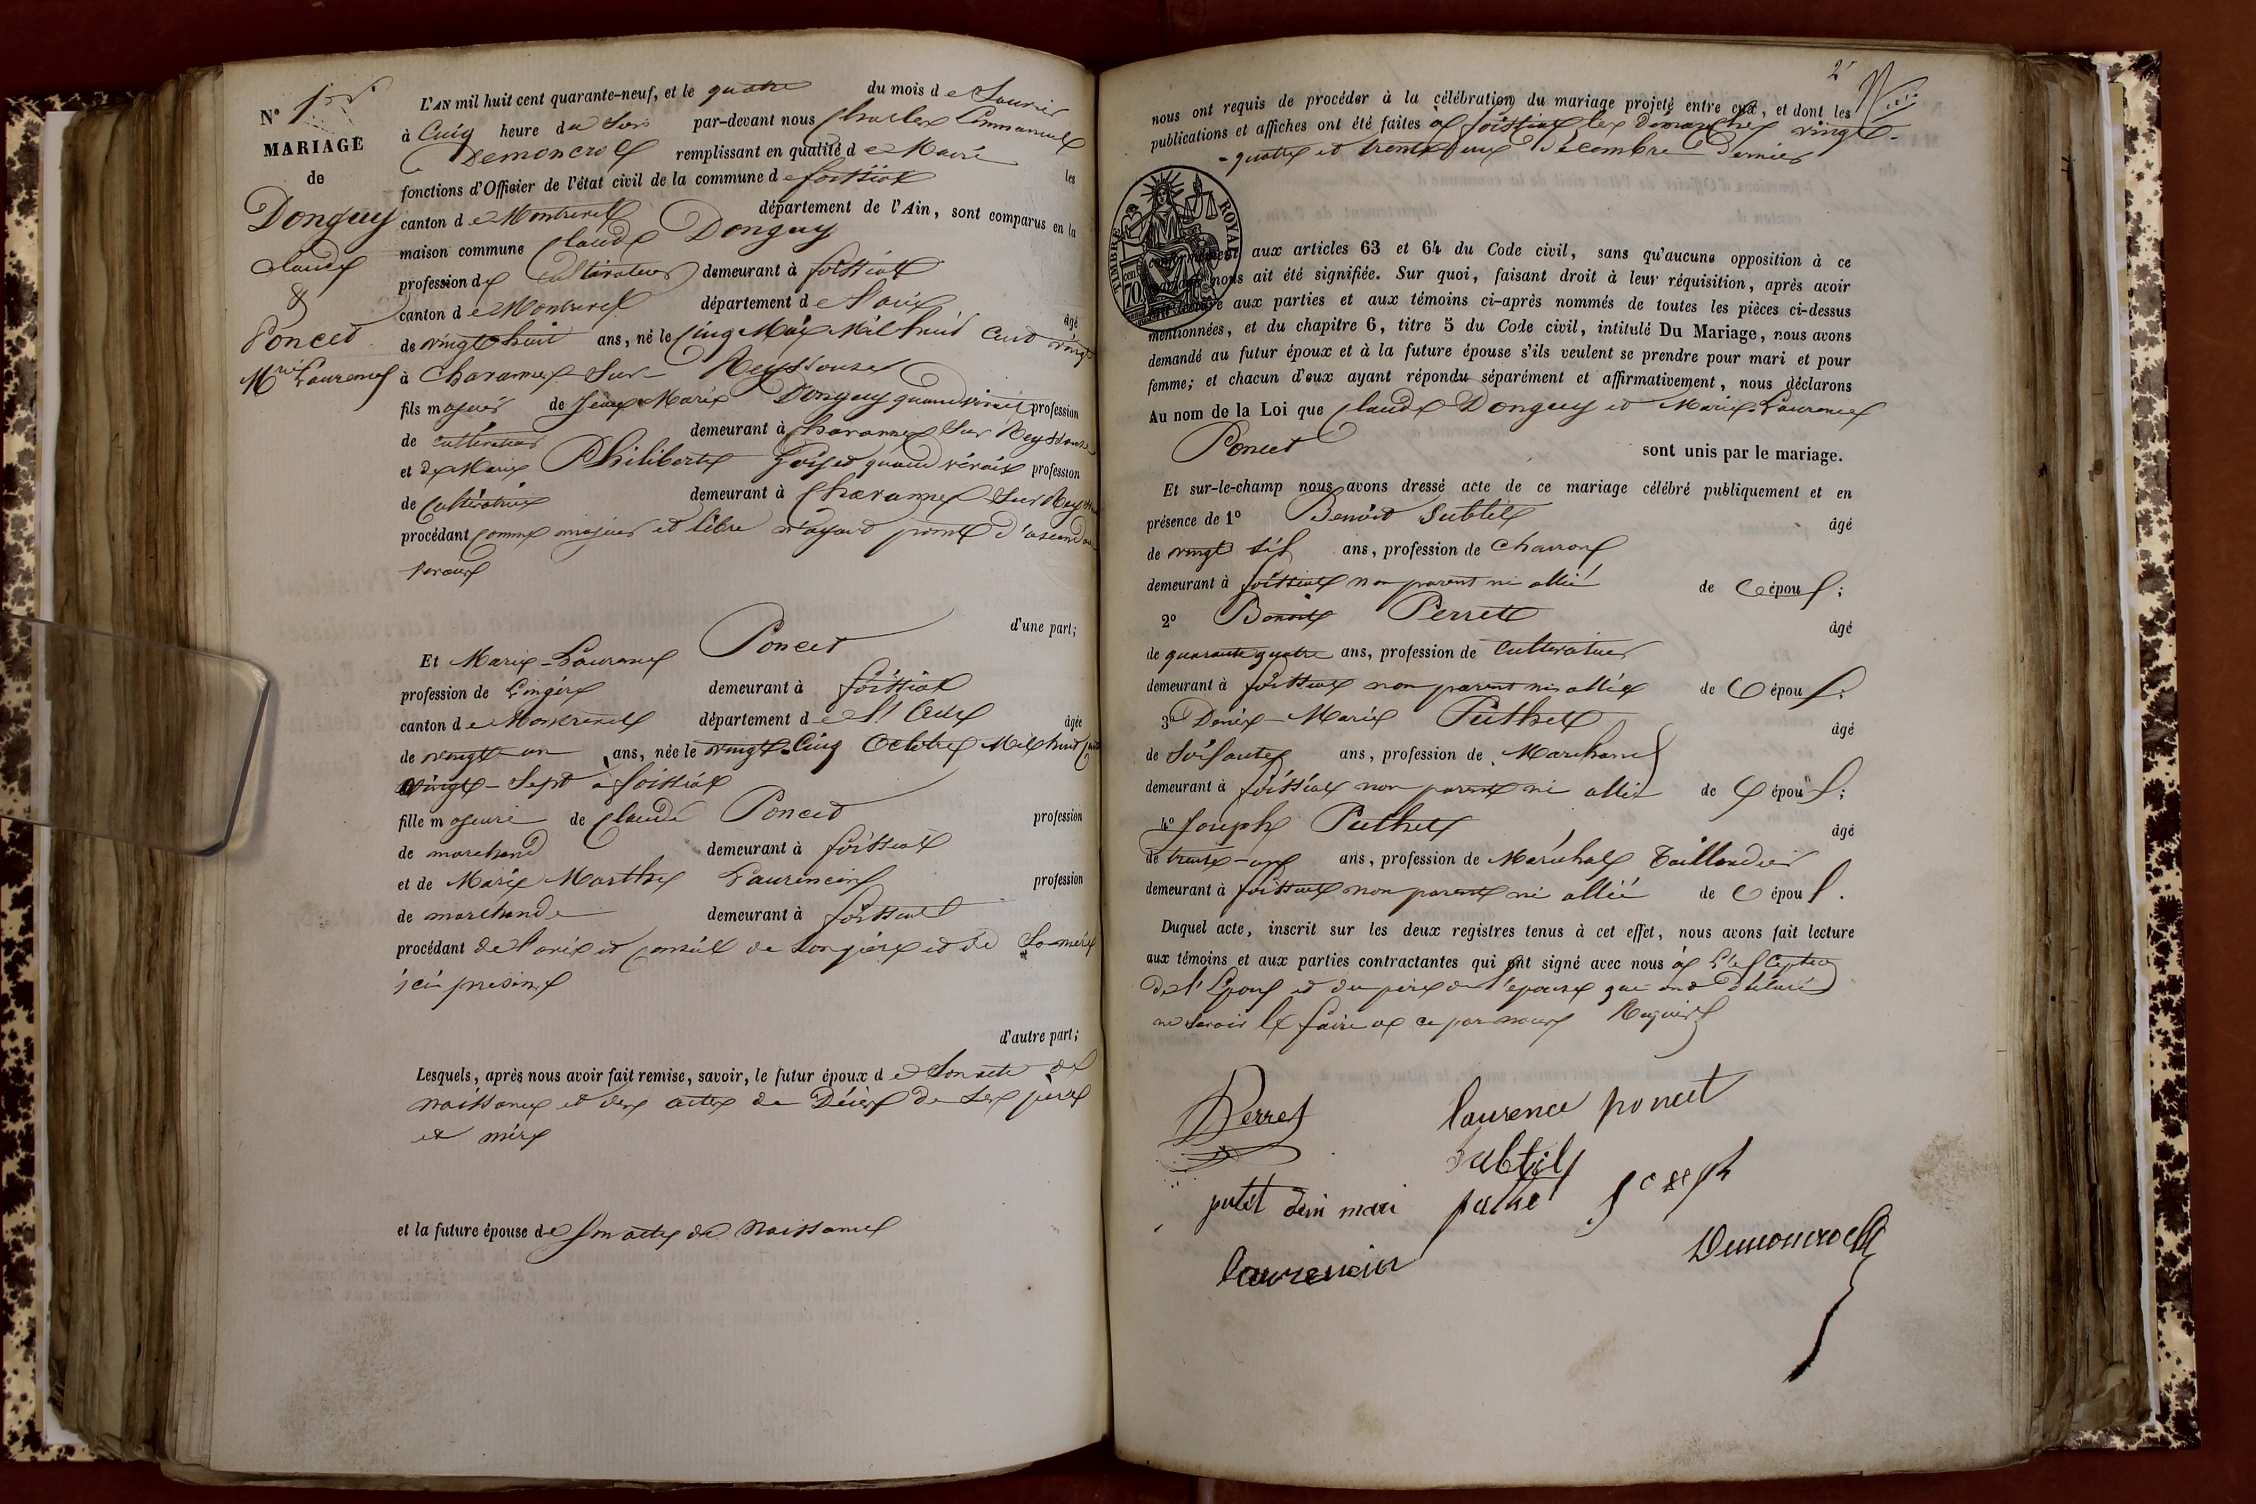 N° 1er
MARIAGE
de
Donguy
Claude
&
Poncet
Mie Laurence
L'AN mil huit cent quarante-neuf, et le quatre du mois de Janvier
à Cinq heure du Soir par-devant nous Charles Emmanuel
remplissant en qualité de Maire les
fonctions d'Officier de l'état civil de la commune de foissiat
canton de Montrevel département de l'Ain, sont comparus en la
maison commune Claude Donguy
profession de Cultivateur demeurant à foissiat
canton de Montrevel département de l'ain âgé
de vingt huit ans, né le Cinq Mai Mil huit Cent vingt
à Chavannes Sur Reyssouze
fils majeur de Jean Marie Donguy quand vivait profession
de cultivateur demeurant à Chavannes Sur Reyssouze
et de Marie Philiberte quand vivait profession
de Cultivatrice demeurant à Chavannes Sur Reyssouze
procédant comme majeur et libre n'ayant point d'ascendants
d'une part;
Et Marie-Laurence Poncet
profession de Lingère demeurant à foissiat
canton de Montrevel département de l'ain âgée
de vingt un ans, née le vingt-Cinq Octobre Mil huit Cent
vingt-Sept à foissiat
fille majeure de Claude Poncet profession
de marchand demeurant à foissiat
et de Marie Marthe Laurencin profession
de marchande demeurant à foissiat
procédant de l'avis et Conseil de son père et de Sa mère
ici présents
d'autre part;
Lesquels, après nous avoir fait remise, savoir, le futur époux de Son acte de
naissance et des actes de Décès de Ses père
et mère
et la future épouse de Son acte de Naissance
2
nous ont requis de procéder à la célébration du mariage projeté entre eux, et dont les
publications et affiches ont été faites à foissiat les dimanches vingt-
-quatre et trente un Décembre dernier
TIMBRE ROYAL
70 cen
conformément aux articles 63 et 64 du Code civil, sans qu'aucune opposition à ce
nous ait été signifiée. Sur quoi, faisant droit à leur réquisition, après avoir
lecture aux parties et aux témoins ci-après nommés de toutes les pièces ci-dessus
mentionnées, et du chapitre 6, titre 5 du Code civil, intitulé Du Mariage, nous avons
demandé au futur époux et à la future épouse s'ils veulent se prendre pour mari et pour
femme; et chacun d'eux ayant répondu séparément et affirmativement, nous déclarons
Au nom de la Loi que Claude Donguy et Marie Laurence
Poncet sont unis par le mariage.
Et sur-le-champ nous avons dressé acte de ce mariage célébré publiquement et en
présence de 1° Benoit Subtil âgé
de vingt six ans, profession de Charron
demeurant à foissiat non parent ni allié des époux;
2° Benoit Perret âgé
de quarante quatre ans, profession de Cultivateur
demeurant à foissiat non parent ni allié des époux;
3° Denis-Marie Puthet âgé
de Soixante ans, profession de Marchand
demeurant à foissiat non parent ni allié des époux;
4° Joseph Puthet âgé
de trente-un ans, profession de Maréchal Taillandier
demeurant à foissiat non parent ni allié des époux.
Duquel acte, inscrit sur les deux registres tenus à cet effet, nous avons fait lecture
aux témoins et aux parties contractantes qui ont signé avec nous à l'Exception
de l'Epoux et du père de l'épouse qui ont déclaré
ne savoir le faire de ce par nous Requis
Perret laurence poncet
Subtil
putet deni mari puthet Joseph
laurencin